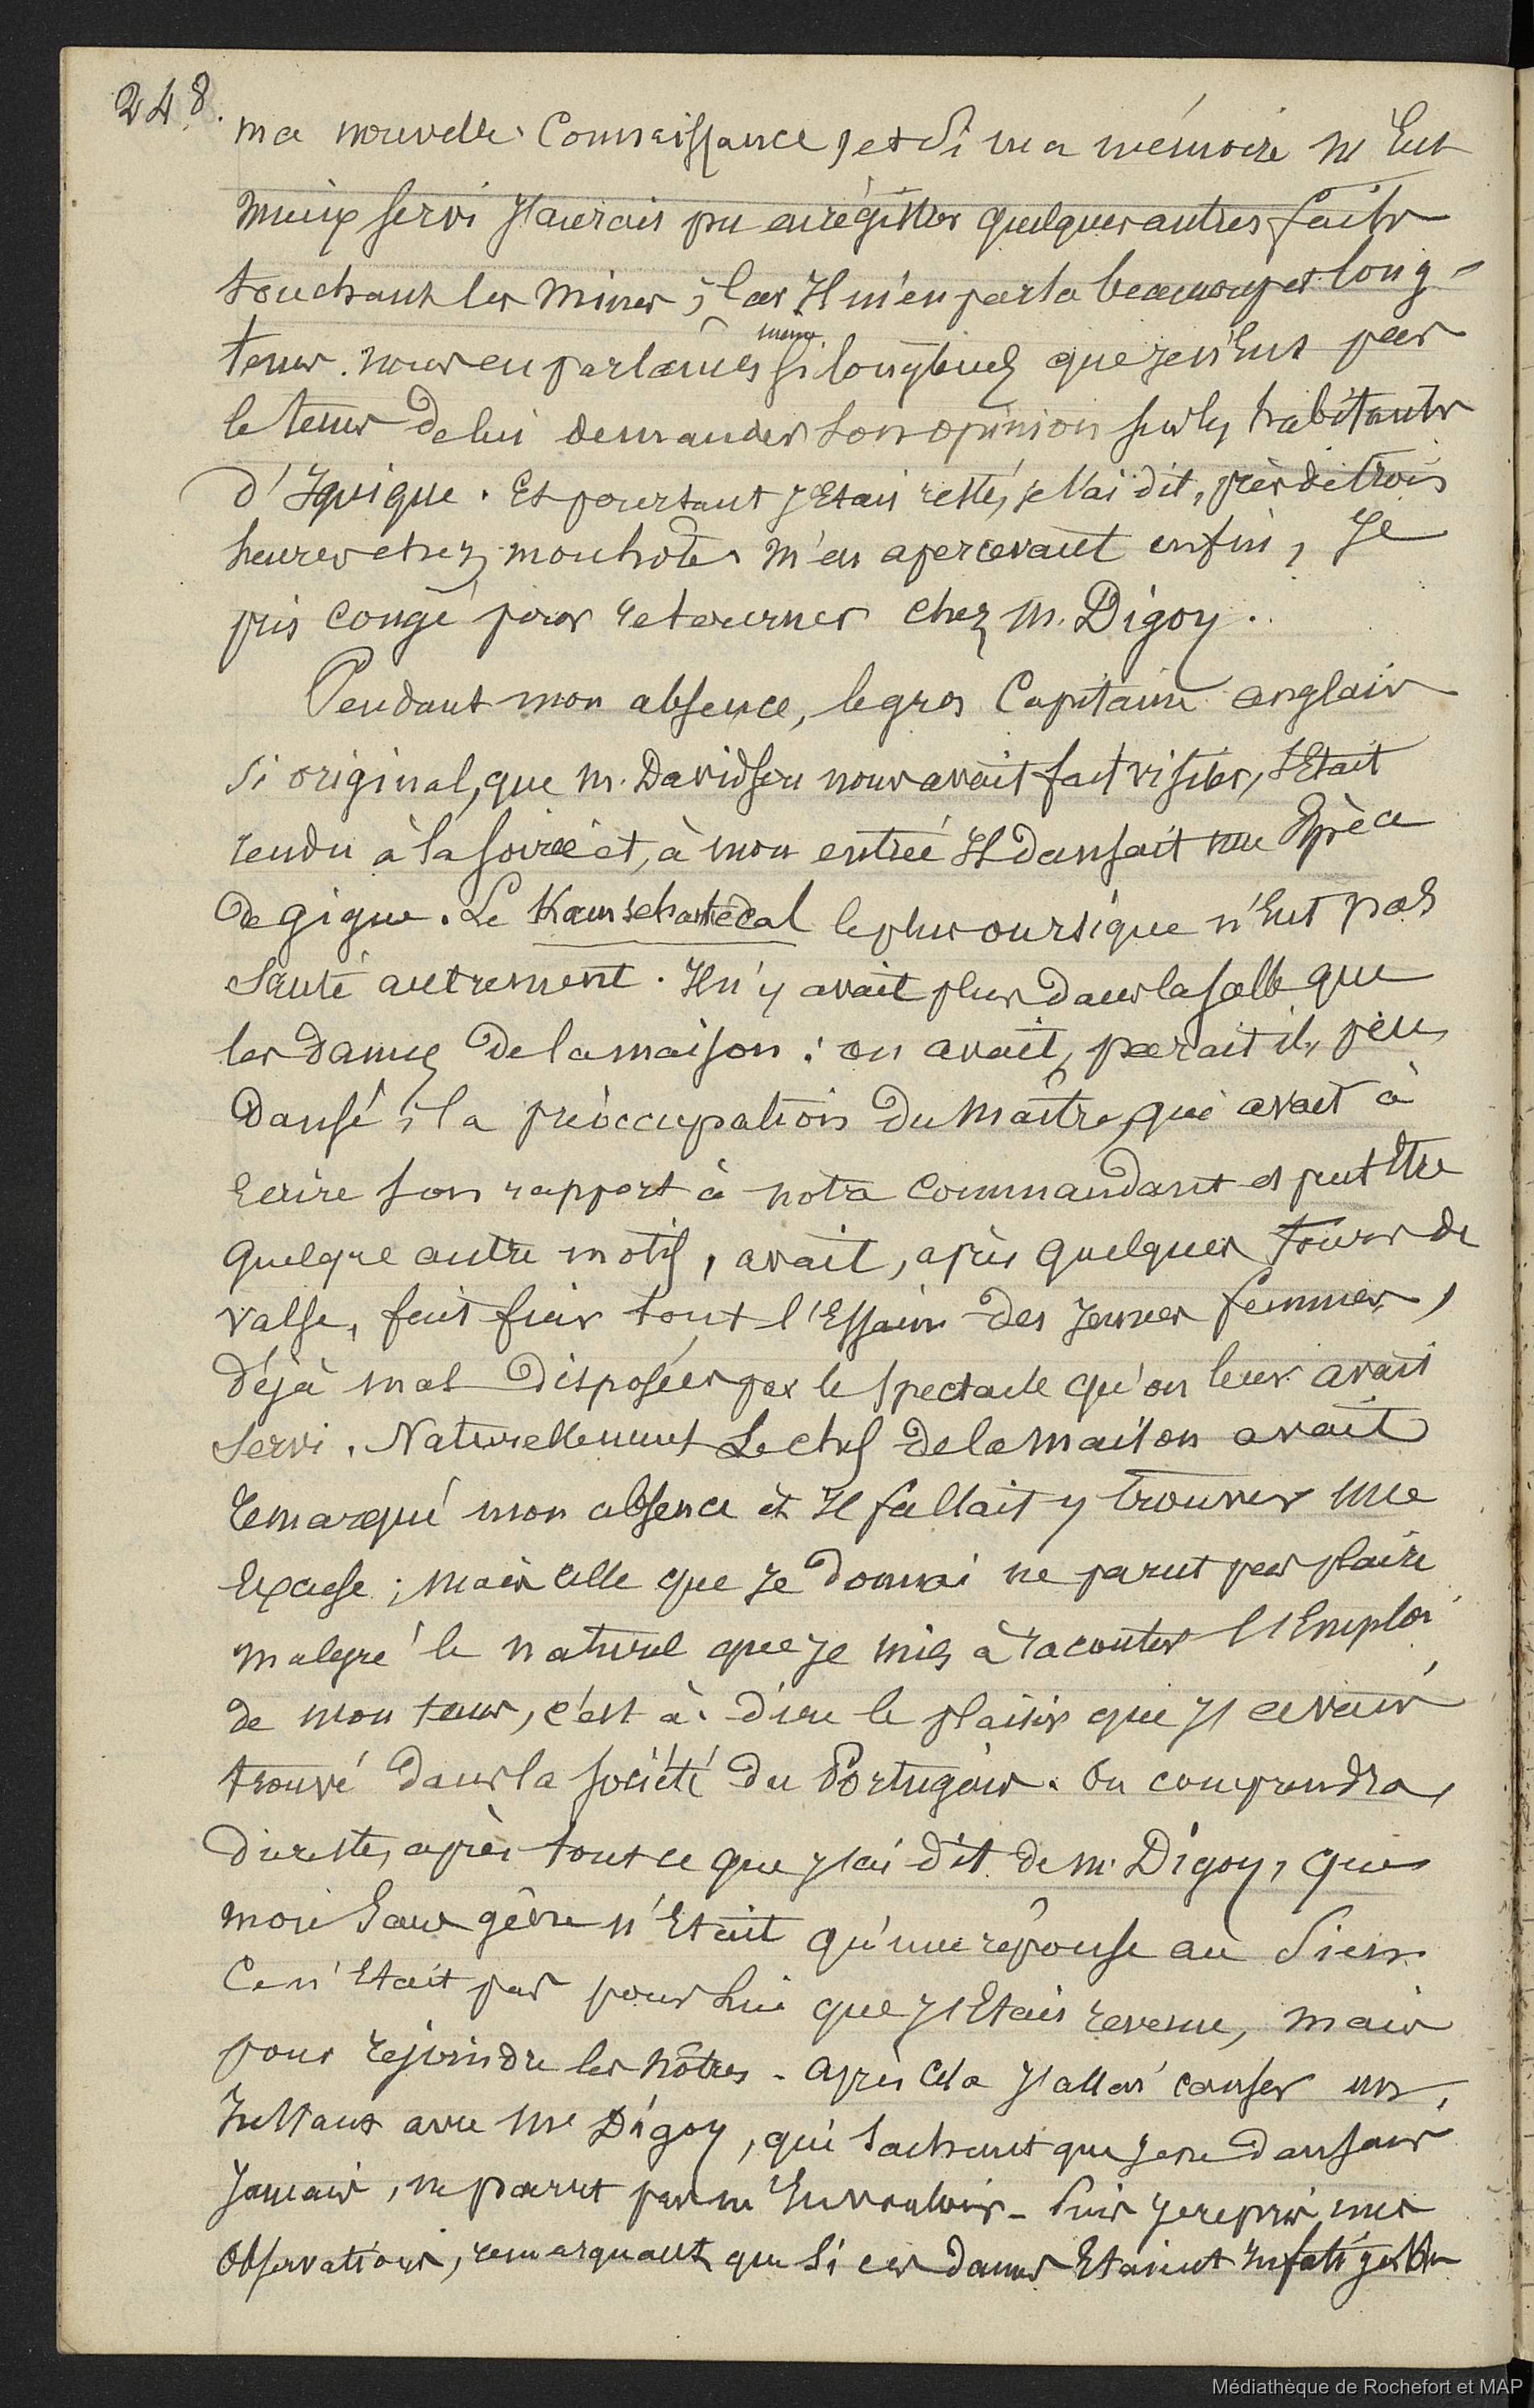 248.
ma nouvelle connaissance, et si ma mémoire m'eut
mieux servi j'aurais pu enrégistrer quelques autres faits
touchant les mines ; car Il m'en parla beaucoup et long-
tems. nous en parlâmes même si longtems que je n'eus pas
le tems de lui demander son opinion sur les habitants
d'Iquique. Et pourtant j'Etais resté, je l'ai dit, près de trois
heures chez mon hôte. M'en apercevant enfin, Je
pris congé pour retourner chez M. Digoy.
Pendant mon absence, le gros Capitaine anglais
si original, que M. Davidson nous avait fait visiter, s'Etait
rendu à la soirée et, à mon entrée Il dansait une Espèce
de gigue. Le Kamschatkédal le plus oursique n'eut pas
sauté autrement. Il n'y avait plus dans la salle que
les dames de la maison : on avait, parait il, peu
dansé ; la préoccupation du Maître, qui avait à
Ecrire son rapport à notre commandant et peut être
quelque autre motif, avait, après quelques tours de
valse, fait fuir tout l'Essaim des jeunes femmes,
déjà mal disposées par le spectacle qu'on leur avait
servi. Naturellement Le chef de la maison avait
remarqué mon absence et Il fallait y trouver une
Excuse ; mais celle que je donnai ne parut pas plaire
malgré le naturel que je mis à raconter l'Emploi
de mon tems, c'est à dire le plaisir que j'avais
trouvé dans la société du Portugais. On comprendra,
du reste, après tout ce que j'ai dit de M. Digoy, que
mon sans gêne n'Etait qu'une réponse au sien.
Ce n'Etait pas pour lui que j'Etais revenu, mais
pour rejoindre les nôtres. Après cela j'allai causer un
Instant avec Me Digoy, qui sachant que je ne dansais
jamais, ne parut pas m'En vouloir. Puis je repris mes
observations, remarquant que si ces dames Etaient Infatigables
Médiathèque de Rochefort et MAP